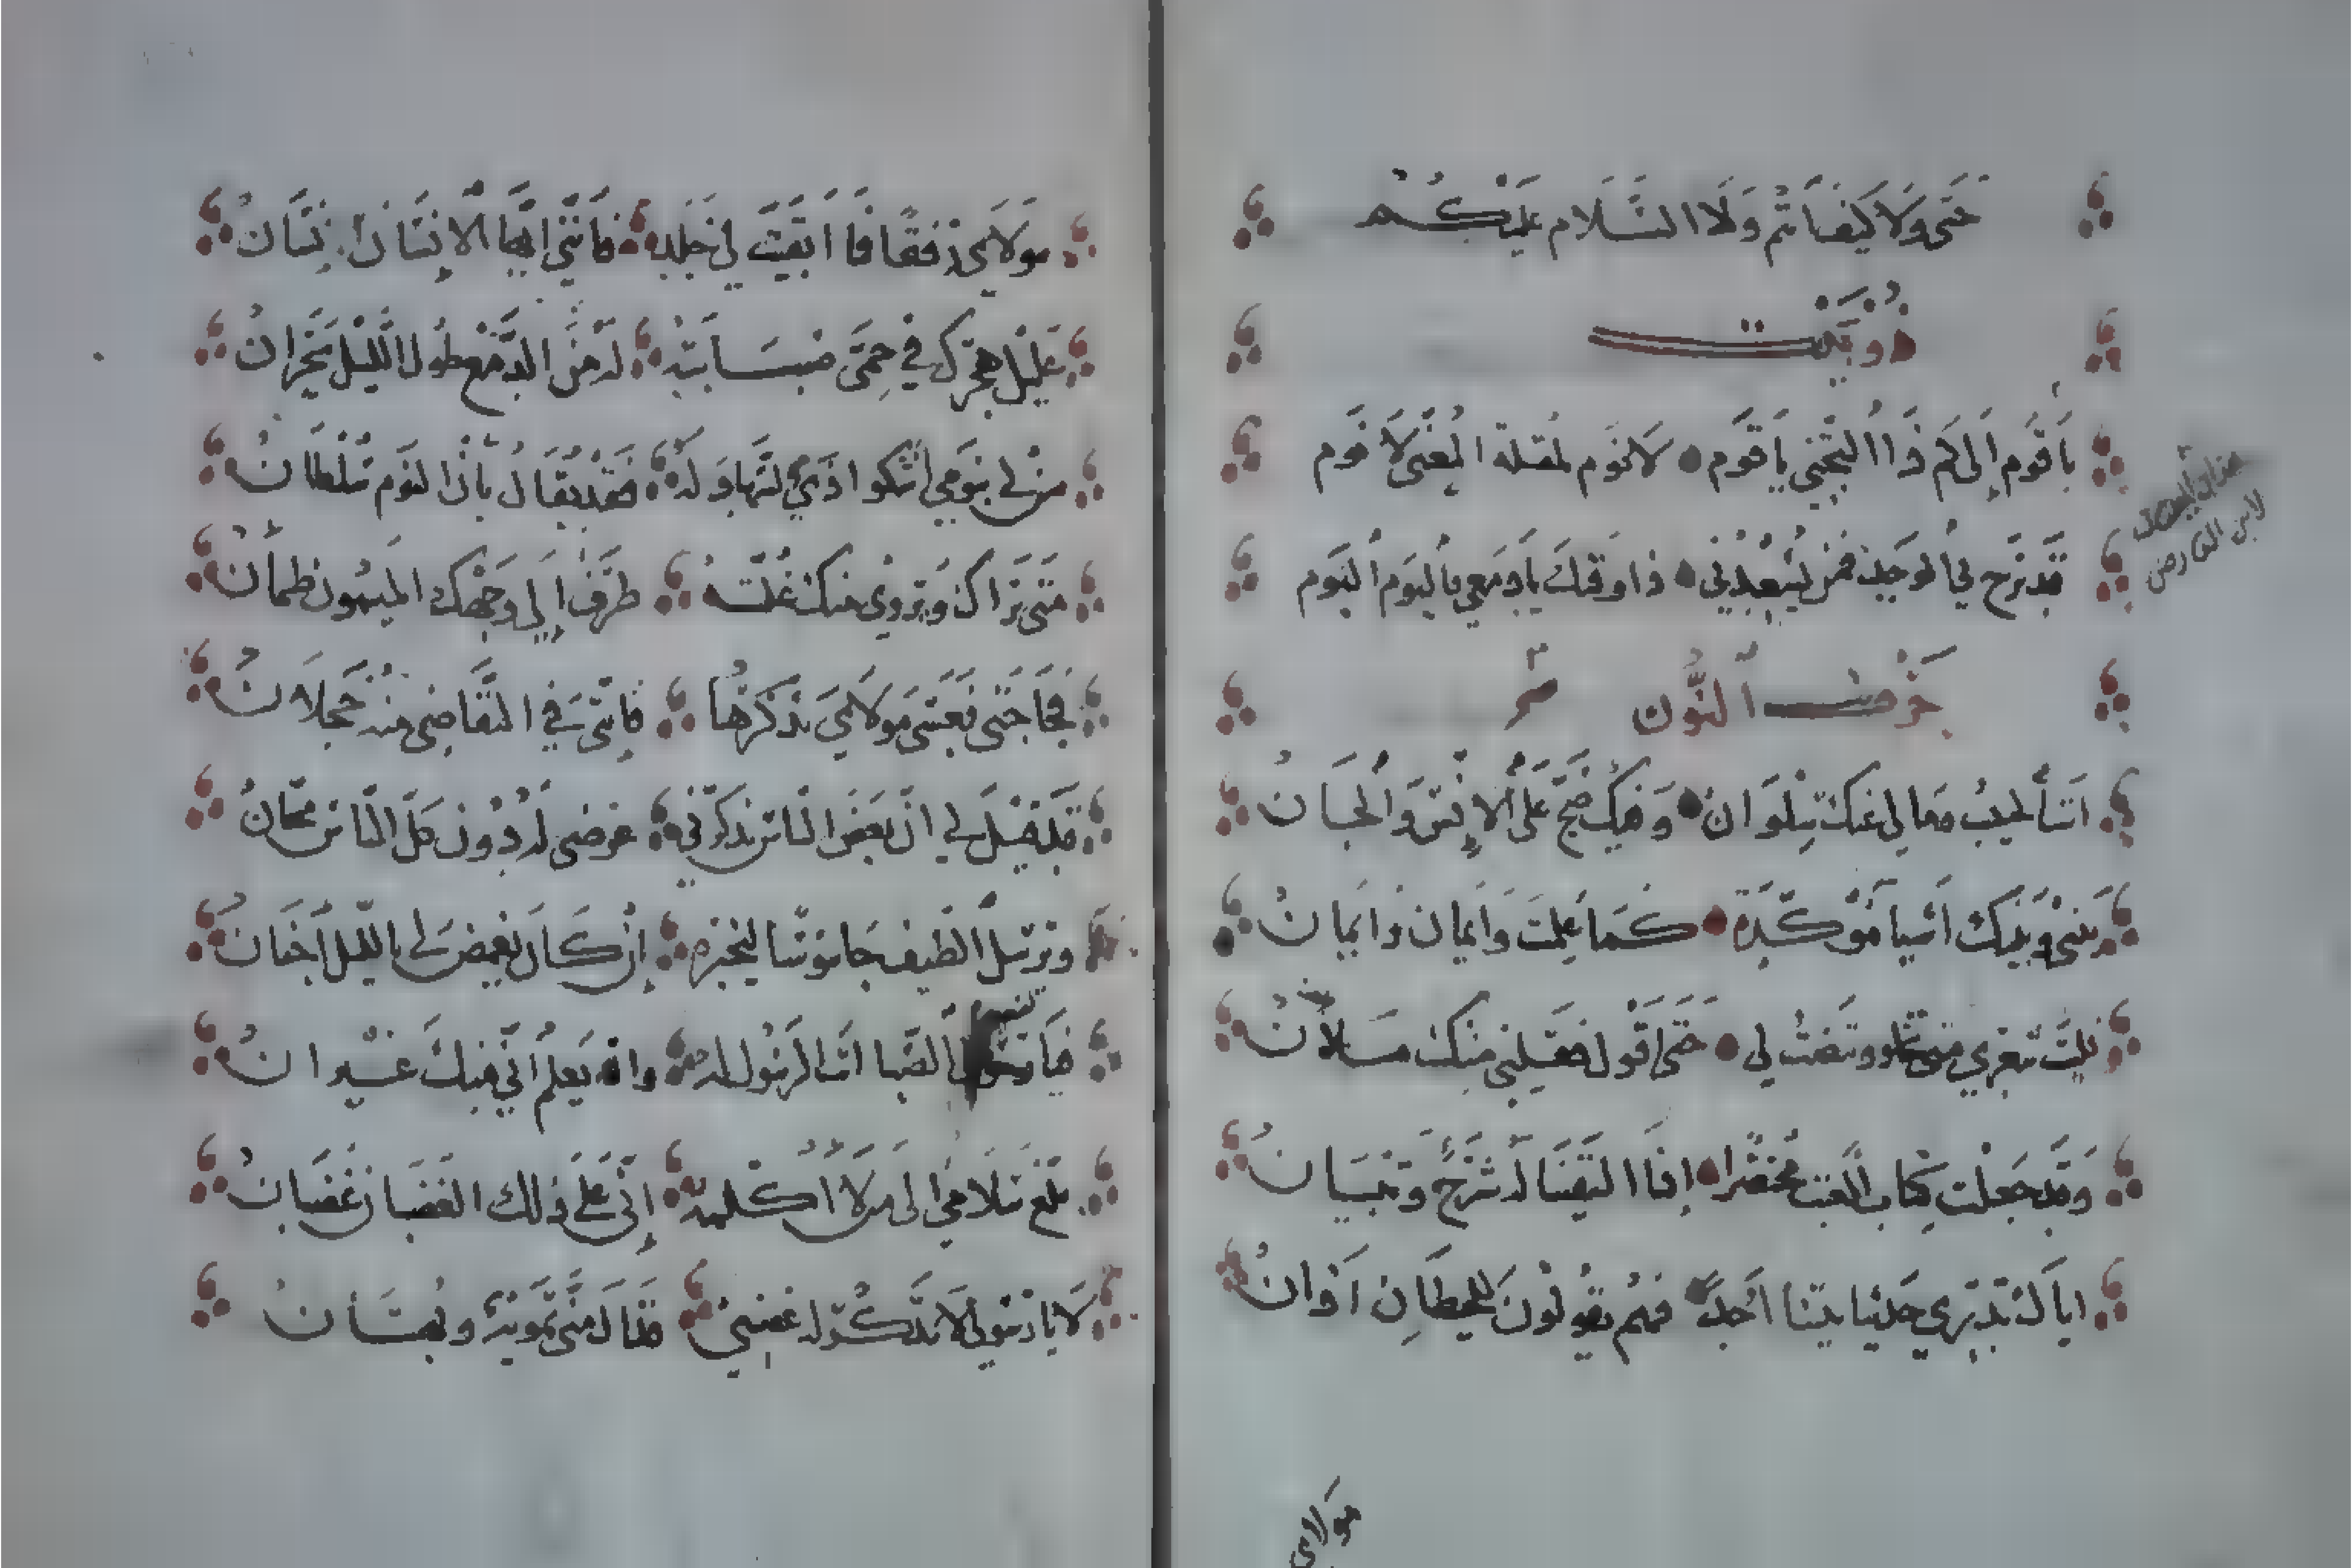 حتى ولا كيف أنتم ولا السلام عليكم
دوبيت
يا قوم إلى كم ذا التجني يا قوم لا نوم لمقلة المعنى لا نوم
قد برح بي الوجد فمن يسعدني ذا وقتك يا دمعي فاليوم اليوم
هذان البيتان
لابن الفارض
حرف النون
أنت الحبيب ومالي عنك سلوان وفيك ضج علي الإنس والجان
بيني وبينك أشيا مؤكدة كما علمت وأيمان وأيمان
فليت شعري متى تخلو وتنصت لي حتى أقول فقلبي منك ملآن
وقد جعلت كتاب العتب مختصرا إذا التقينا له شرح وتبيان
إياك يدري حديثا بيننا أحد فهم يقولون للحيطان آذان
مولاي
مولاي رفقا فما أبقيت لي جلدا فإنني أيها الإنسان إنسان
عليل هجرك في حمى صبابته له من الدمع طول الليل بحران
من لي بنومي أشكو ذي السهاد له فقد يقال بأن النوم سلطان
متى يراك ويروى منك غلته طرف إلى وجهك الميمون ظمآن
فحاجتي فعسى مولاي تذكرها فإنني في التقاضي منه خجلان
قد قيل لي إن بعض الناس يذكرني عرضي له دون كل الناس مجان
ويرسل الطيف جاسوسا ليخبره إن كان يغمض لي بالليل أجفان
فيا نسيم الصبا أنت الرسول له والله يعلم أني منك غيران
بلغ سلامي إلى من لا أكلمه إني على ذلك الغضبان غضبان
لا يا رسولي لا تذكر له غضبي فذاك مني تمويه وبهتان